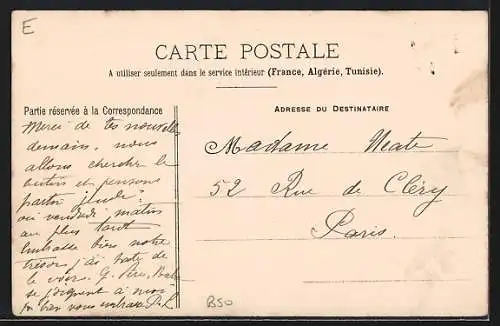 E
CARTE POSTALE
A utiliser seulement dans le service intérieur (France, Algérie, Tunisie).
Partie réservée à la Correspondance
ADRESSE DU DESTINATAIRE
Merci de tes nouvelles
demain, nous
allons chercher le
et pensons
partir jeudi
ou vendredi matin
au plus tard
Embrasse bien notre
trésor j'ai hate de
le voir. G.
se joignent à moi
bien vous
Madame
52 Rue de Cléry
Paris.
B50